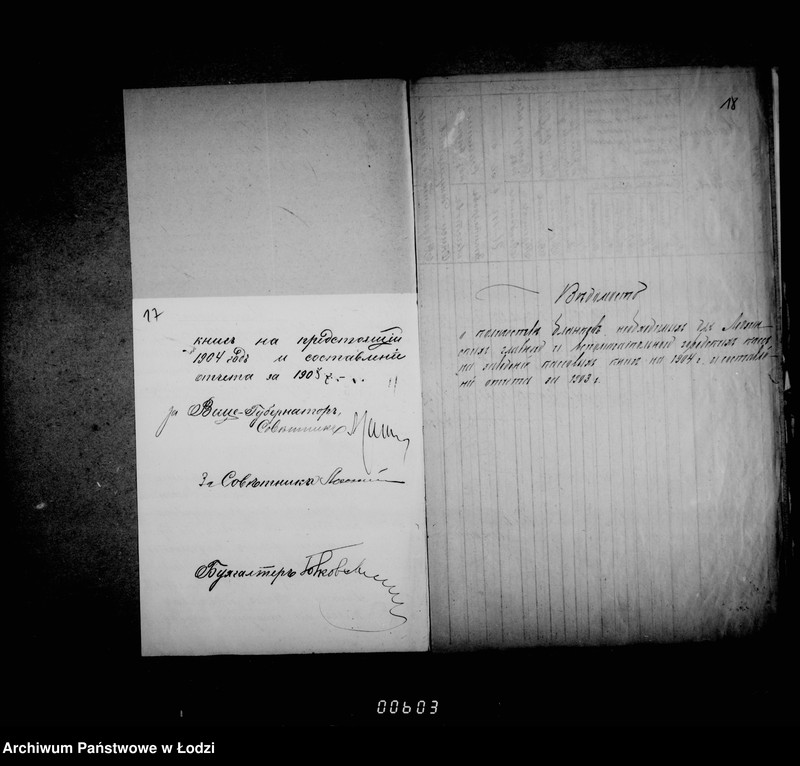 17
книгъ на предстоящiй
1904 годъ и составленiй
отчета за 1903 г.
За Вице-Губернаторъ,
Совѣтникъ
За Совѣтника
Бухгалтеръ
18
Вѣдомость
о количествѣ бланковъ, необходимых для
главной и вспомогательной городских кассъ
на заведенiе кассовых книгъ на 1904 г. и составле-
нiя отчета за 1903 г.
00603
Archiwum Państwowe w Łodzi